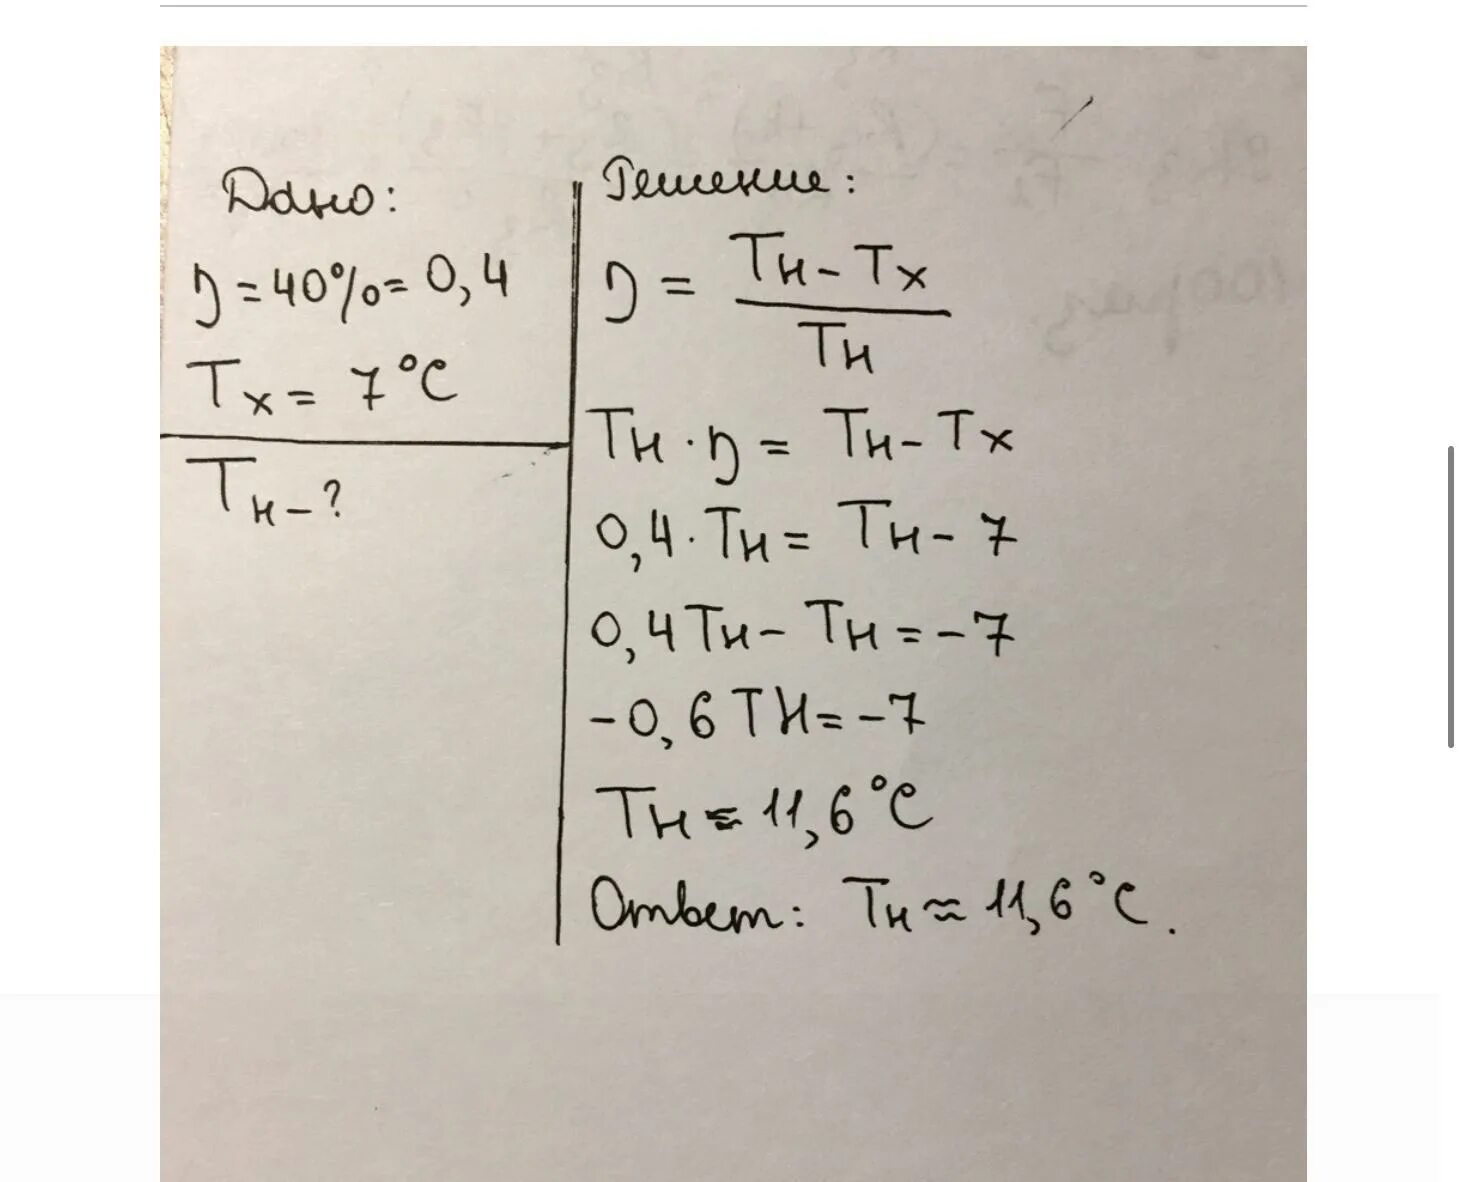 Дано:
η = 40% = 0,4
Tх = 7°C
Tн - ?
Решение:
η = Tн - Tх
Tн
Tн · η = Tн - Tх
0,4 · Tн = Tн - 7
0,4 Tн - Tн = -7
-0,6 Tн = -7
Tн ≈ 11,6°C
Ответ: Tн ≈ 11,6°C.